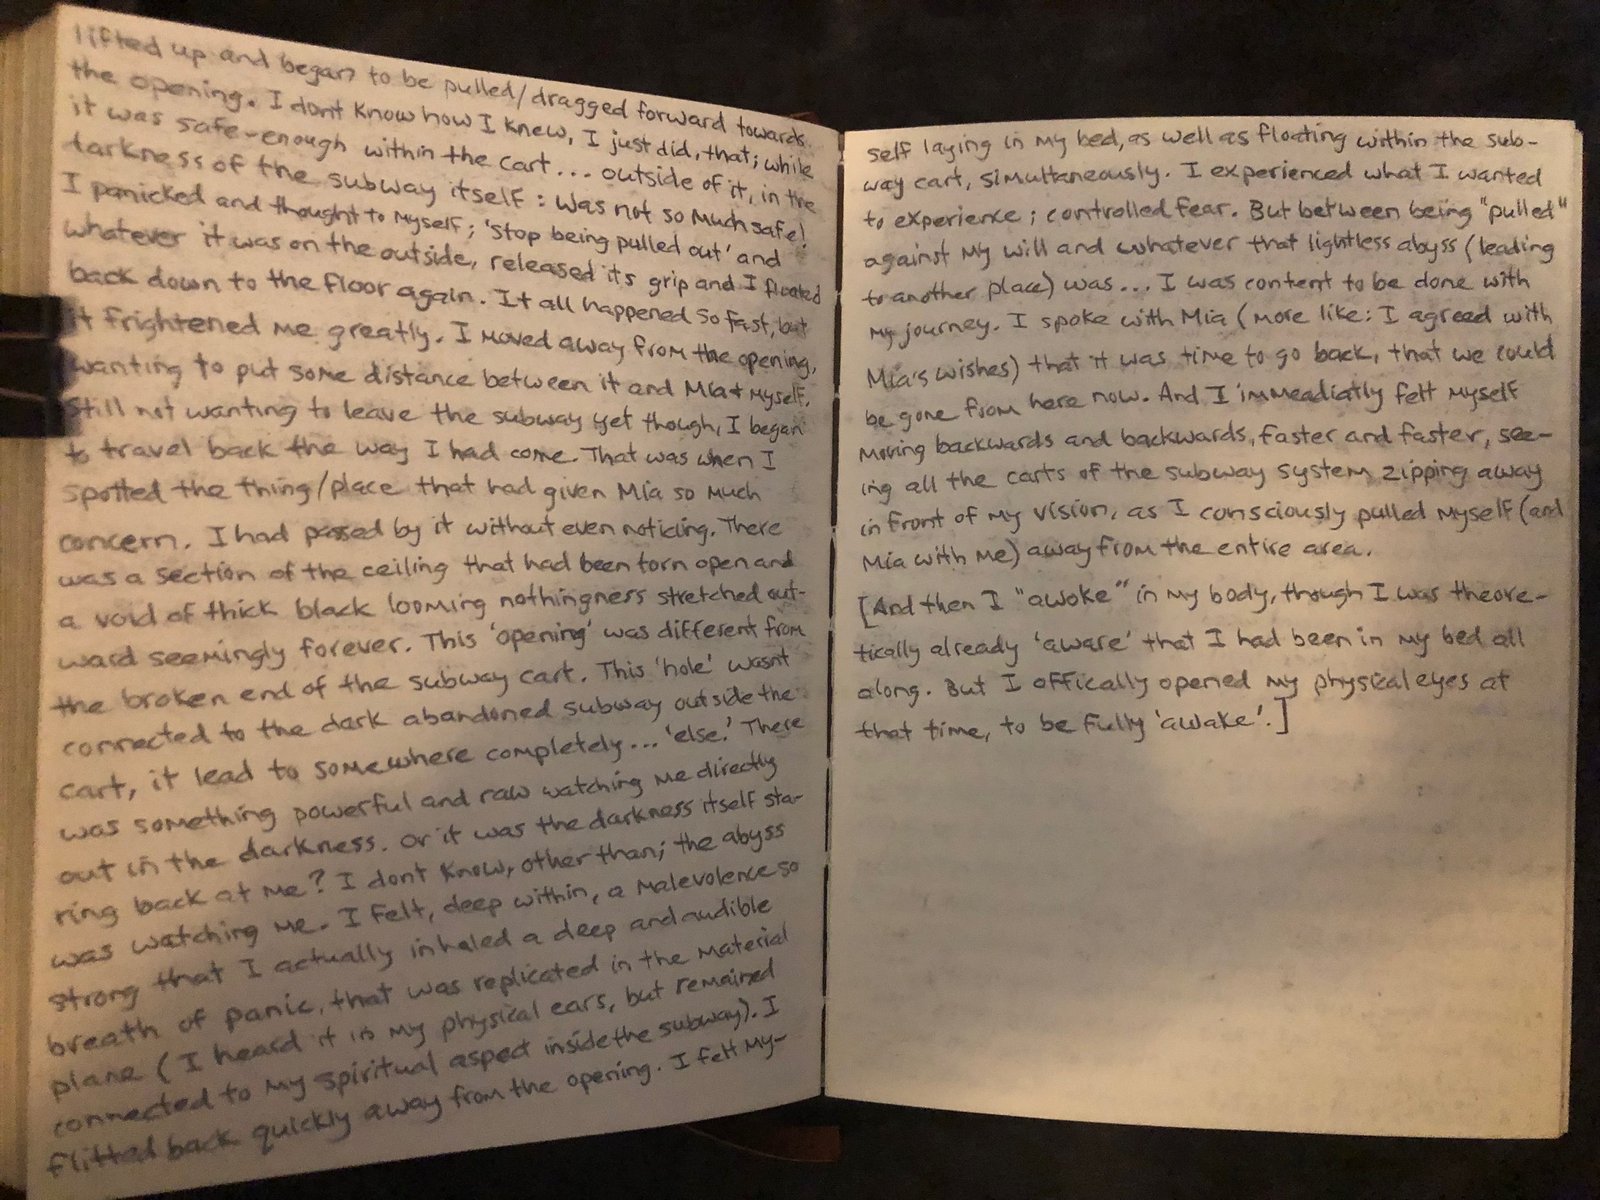 lifted up and began to be pulled/dragged forward towards
the opening. I dont know how I knew, I just did, that; while
it was safe-enough within the cart... outside of it, in the
darkness of the subway itself: was not so much safe!
I panicked and thought to myself; 'stop being pulled out' and
whatever it was on the outside, released its grip and I floated
back down to the floor again. It all happened so fast, but
it frightened me greatly. I moved away from the opening,
wanting to put some distance between it and Mia & myself.
Still not wanting to leave the subway yet though, I began
to travel back the way I had come. That was when I
spotted the thing/place that had given Mia so much
concern. I had passed by it without even noticing. There
was a section of the ceiling that had been torn open and
a void of thick black looming nothingness stretched out-
ward seemingly forever. This 'opening' was different from
the broken end of the subway cart. This 'hole' wasnt
connected to the dark abandoned subway outside the
cart, it lead to somewhere completely... 'else.' There
was something powerful and raw watching me directly
out in the darkness. Or it was the darkness itself sta-
ring back at me? I dont know, other than; the abyss
was watching me. I felt, deep within, a malevolence so
strong that I actually inhaled a deep and audible
breath of panic, that was replicated in the material
plane (I heard it in my physical ears, but remained
connected to my spiritual aspect inside the subway). I
flitted back quickly away from the opening. I felt my-
self laying in my bed, as well as floating within the sub-
way cart, simulttaneously. I experienced what I wanted
to experience; controlled fear. But between being "pulled"
against my will and whatever that lightless abyss (leading
to another place) was... I was content to be done with
my journey. I spoke with Mia (more like: I agreed with
Mia's wishes) that it was time to go back, that we could
be gone from here now. And I immeadiatly felt myself
moving backwards and backwards, faster and faster, see-
ing all the carts of the subway system zipping away
in front of my vision, as I consciously pulled myself (and
Mia with me) away from the entire area.
[And then I "awoke" in my body, though I was theore-
tically already 'aware' that I had been in my bed all
along. But I offically opened my physical eyes at
that time, to be fully 'awake'.]